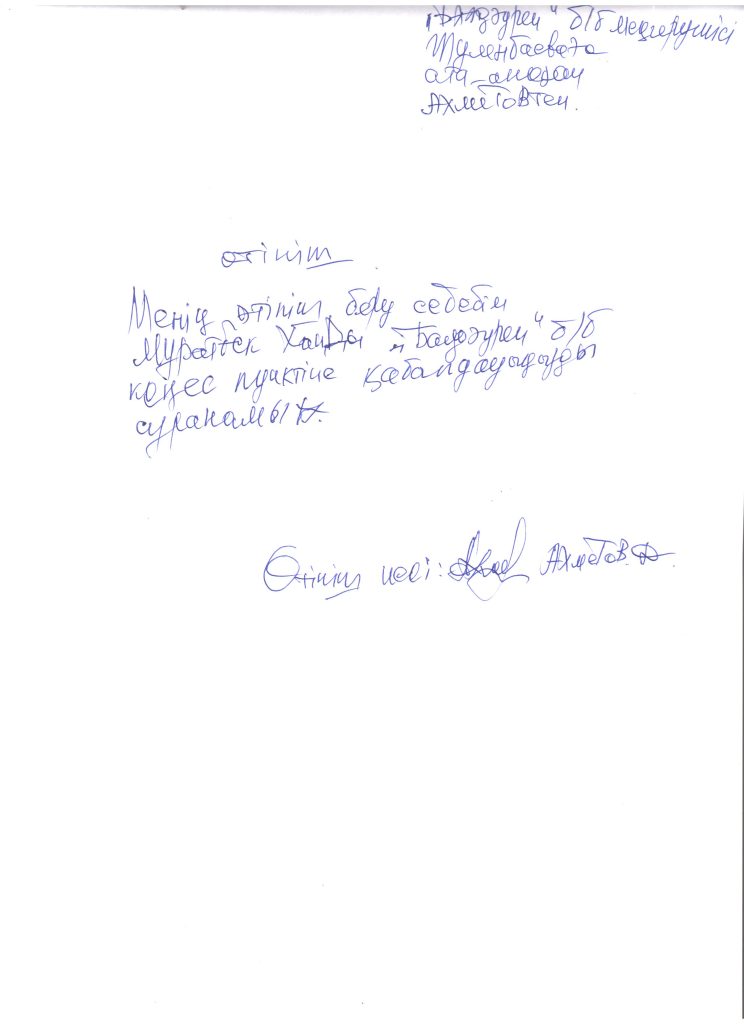 "Балдәурен" б/б меңгерушісі
Туленбаеваға
ата-анадан
Ахметовтен.
Өтініш
Менің өтініш беру себебім
Муратбек "Балдәурен" б/б
кеңес пунктіне қабылдауыңызды
сұранамын.
Өтініш иесі: Ахметов. Д.